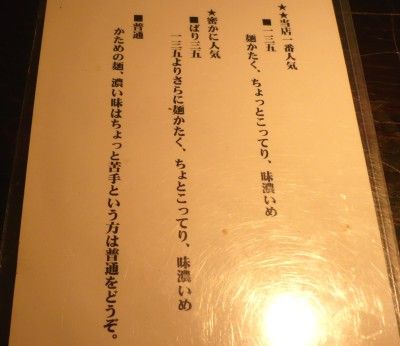 ★★当店一番人気
■一三五
麺かたく、ちょっとこってり、味濃いめ
★密かに人気
■ばり三五
一三五よりさらに麺かたく、ちょとこってり、味濃いめ
■普通
かための麺、濃い味はちょっと苦手という方は普通をどうぞ。